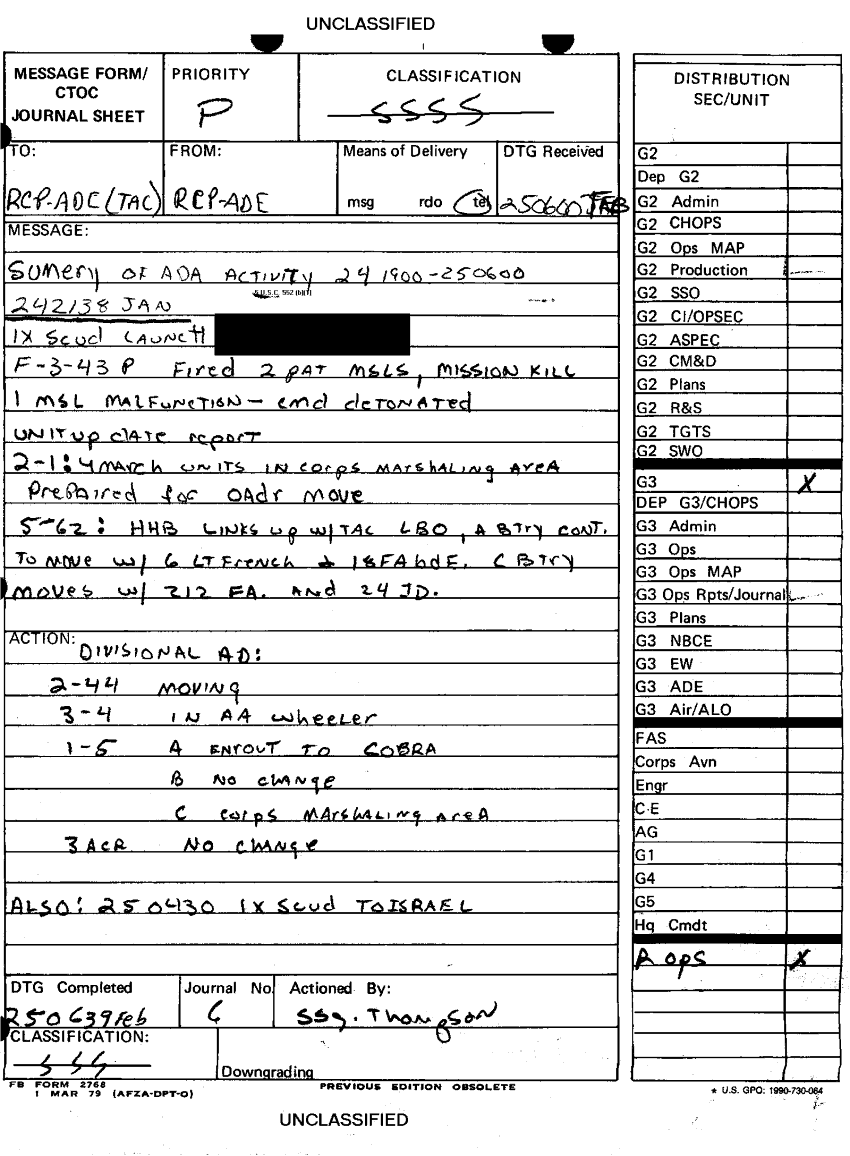 UNCLASSIFIED
MESSAGE FORM/
CTOC
JOURNAL SHEET
PRIORITY
P
CLASSIFICATION
SSSS
TO:
RCP-ADE (TAC)
FROM:
RCP-ADE
Means of Delivery
msg rdo tel
DTG Received
250600 FEB
MESSAGE:
SUMERY OF ADA ACTIVITY 241900-250600
242138 JAN
1X Scud LAUNCH
F-3-43 P Fired 2 PAT MSLS, MISSION KILL
1 MSL MALFUNCTION - cmd detonated
UNIT up date report
2-1: 4 march units in corps MARSHALING AreA
PrePAired for OAdr move
5-62: HHB LINKS up w/TAC LBO, A BTry CONT.
TO MOVE w/ 6 LT French + 18FA bdE. C BTry
moves w/ 212 FA. AND 24 ID.
ACTION:
DIVISIONAL AD:
2-44 MOVING
3-4 IN AA wheeler
1-5 A ENROUT TO COBRA
B NO CHANGE
C corps MArshALing AreA
3 ACR NO CHANGE
ALSO: 250430 1X Scud TO ISRAEL
DTG Completed
250639 Feb
Journal No
6
Actioned By:
SSg. Thompson
CLASSIFICATION:
SSS
Downgrading
FB FORM 2768
1 MAR 79 (AFZA-DPT-O)
PREVIOUS EDITION OBSOLETE
DISTRIBUTION
SEC/UNIT
G2
Dep G2
G2 Admin
G2 CHOPS
G2 Ops MAP
G2 Production
G2 SSO
G2 CI/OPSEC
G2 ASPEC
G2 CM&D
G2 Plans
G2 R&S
G2 TGTS
G2 SWO
G3 X
DEP G3/CHOPS
G3 Admin
G3 Ops
G3 Ops MAP
G3 Ops Rpts/Journal
G3 Plans
G3 NBCE
G3 EW
G3 ADE
G3 Air/ALO
FAS
Corps Avn
Engr
C-E
AG
G1
G4
G5
Hq Cmdt
R ops X
* U.S. GPO: 1990-730-084
UNCLASSIFIED